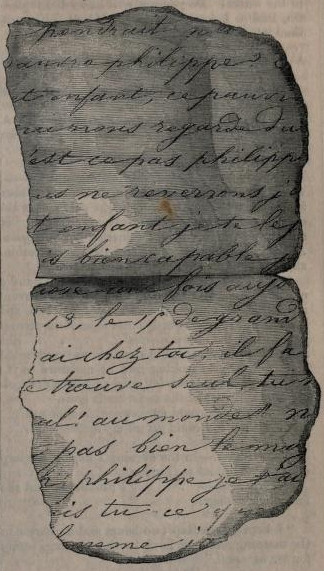 pondrait n
pauvre philippe
t enfant, ce pauvr
qui nous regarde du
'est ce pas philippe
us ne reverrons j
t enfant je te le
is bien capable
ose une fois au
13, le 15 de grand
ai chez toi, il fa
e trouve seul, tu
ul! au monde! n
pas bien le
philippe je t'ai
is tu ce que
h meme je